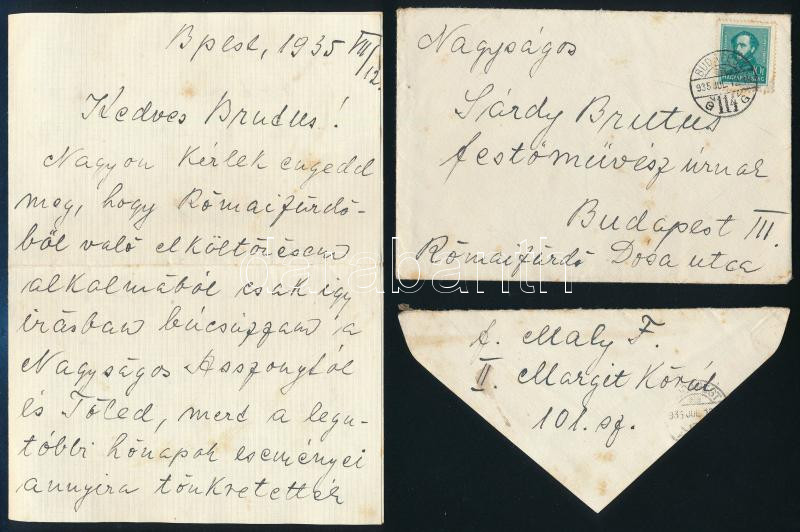 Bpest, 1935 VII/12.
Kedves Brutus!
Nagyon kérlek engedd
meg, hogy Rómaifürdő-
ből való elköltözésem
alkalmából csak így
írásban búcsúzzam a
Nagyságos Asszonytól
és Tőled, mert a legu-
tóbbi hónapok eseményei
annyira tönkretették
Nagyságos
Sárdy Brutus
festőművész úrnak
Budapest III.
Rómaifürdő Dosa utca
BUDAPEST
935 JUL
G 114 G
MAGYARORSZÁG
f. Maly F.
II. Margit Körút
101. sz.
935 JUL 12
darabanth